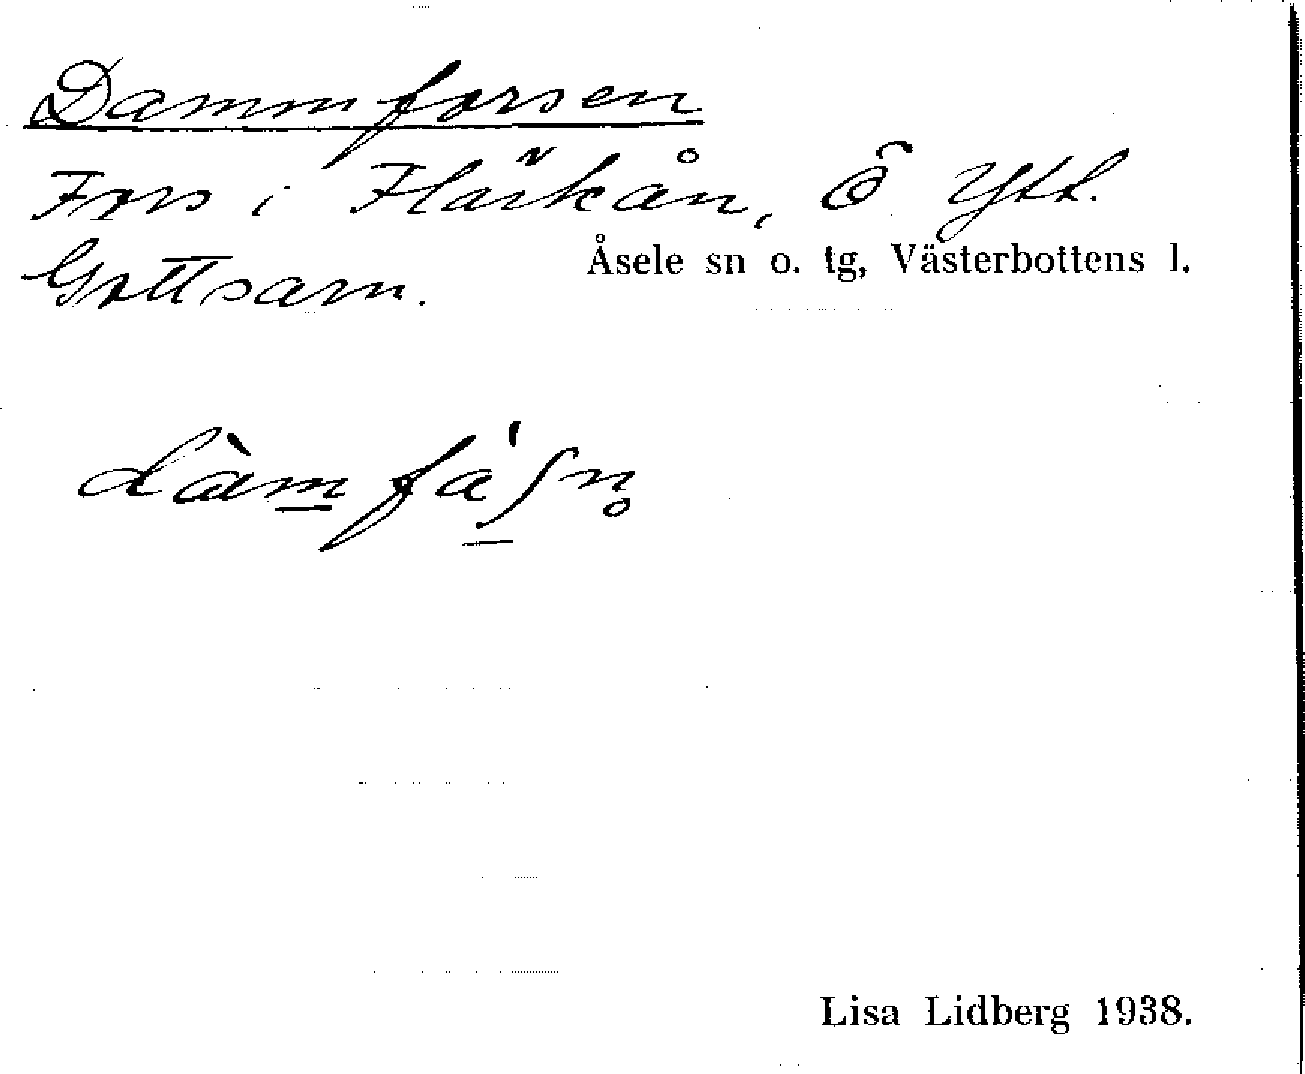 Dammforsen
Fors i Flärkån, Ö Ytt.
Gottsarn.
Åsele sn o. tg, Västerbottens l.
Lisa Lidberg 1938.